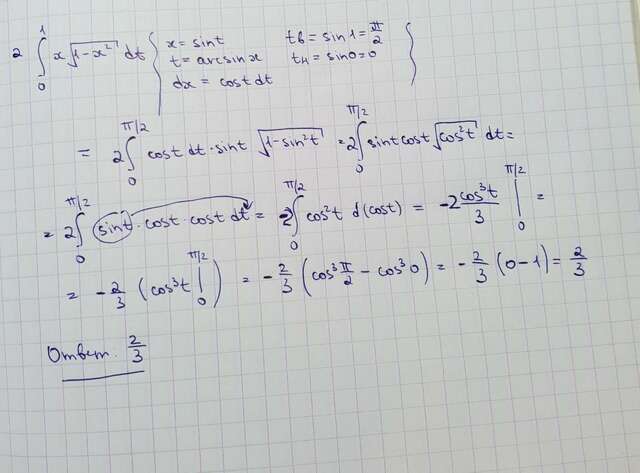 2 ∫₀¹ x√(1-x²) dt { x = sint tв = sin1 = π/2
t = arcsinx tн = sin0 = 0
dx = cost dt }
= 2 ∫₀^(π/2) cost dt · sint √(1-sin²t) = 2 ∫₀^(π/2) sint cost √(cos²t) dt =
= 2 ∫₀^(π/2) sint · cost · cost dt = - 2 ∫₀^(π/2) cos²t d(cost) = -2 cos³t/3 |₀^(π/2) =
= - 2/3 (cos³t |₀^(π/2)) = - 2/3 (cos³ π/2 - cos³0) = - 2/3 (0-1) = 2/3
Ответ: 2/3